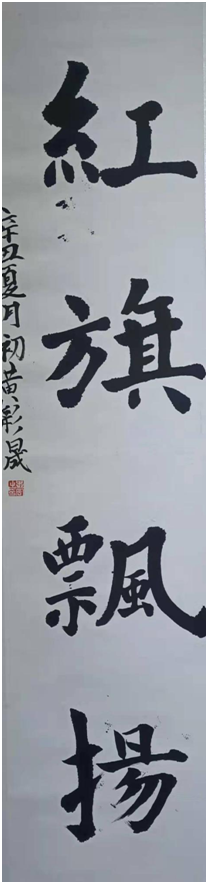 紅旗飄揚
辛丑夏月初黄彩晟